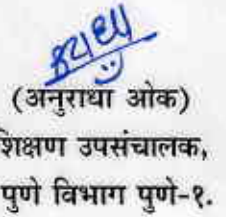 (अनुराधा ओक)
शिक्षण उपसंचालक,
पुणे विभाग पुणे-१.